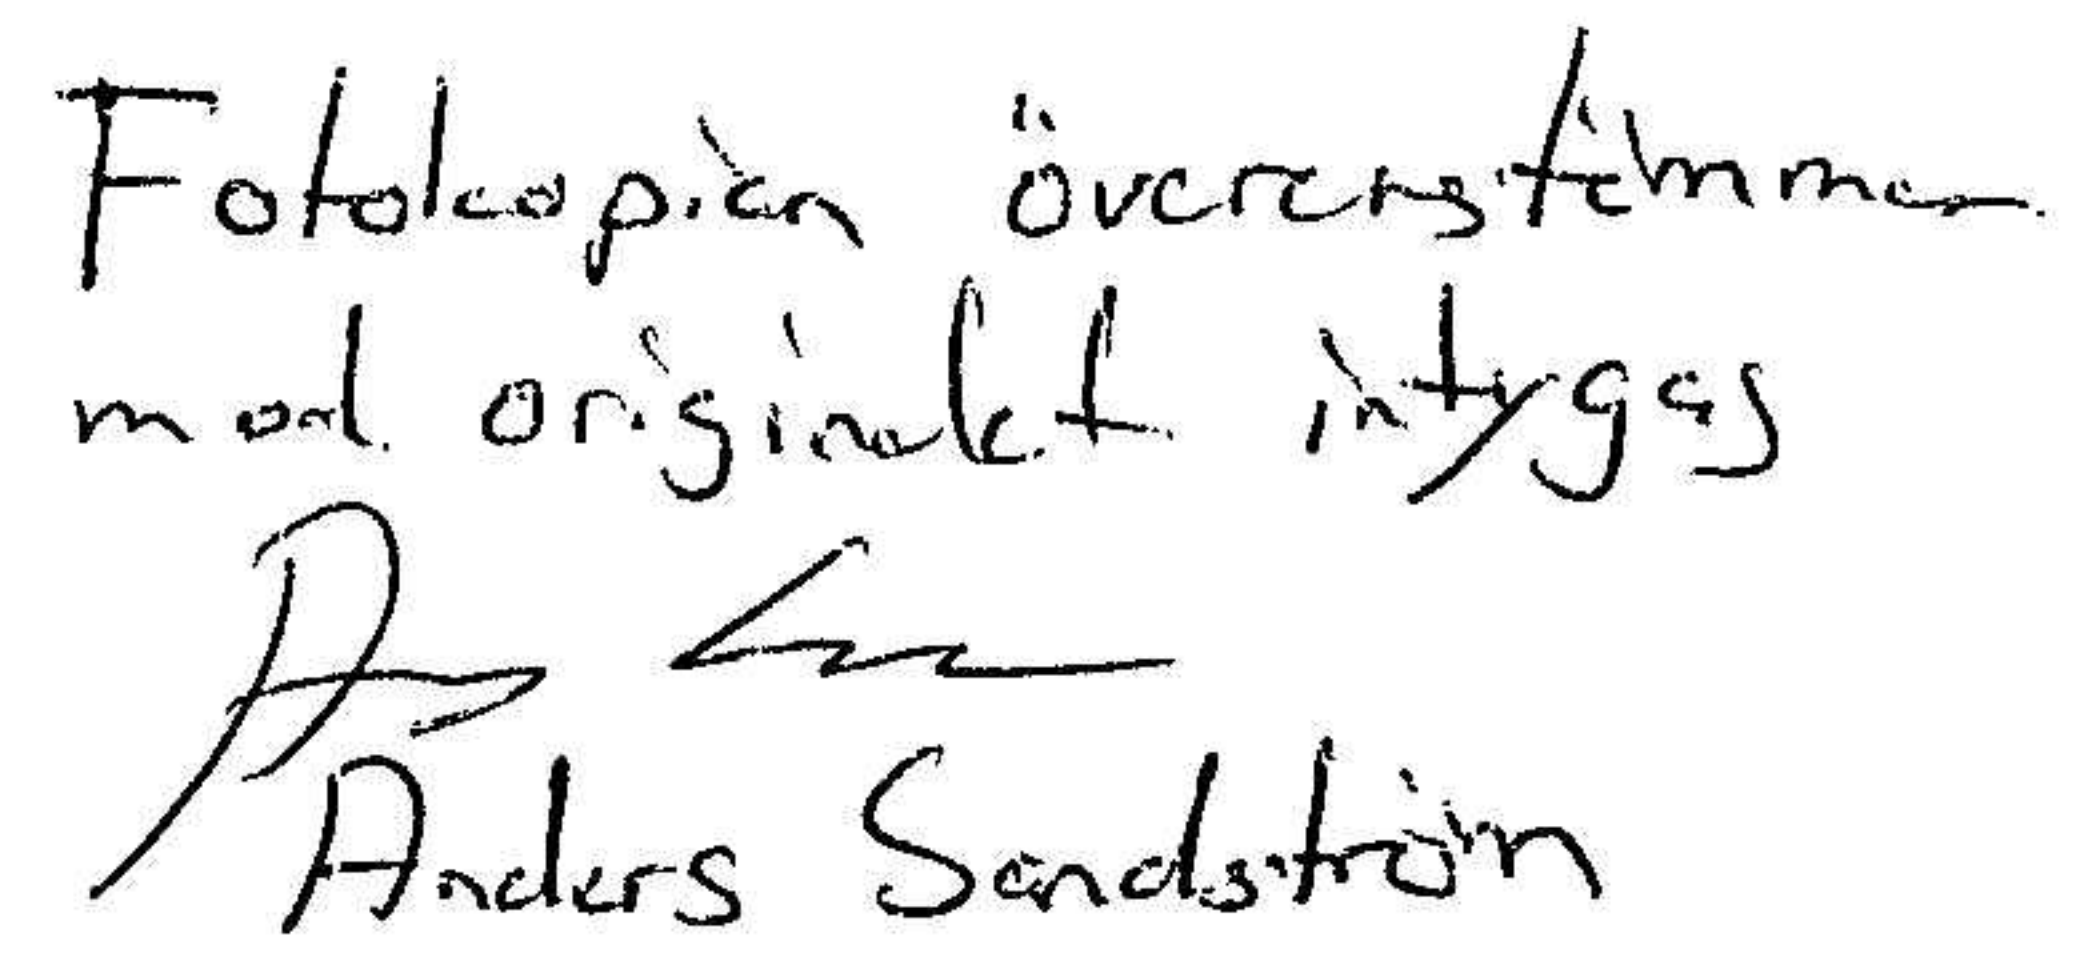 Fotokopian överensstämmer
med originalet intygas
Anders Sandström